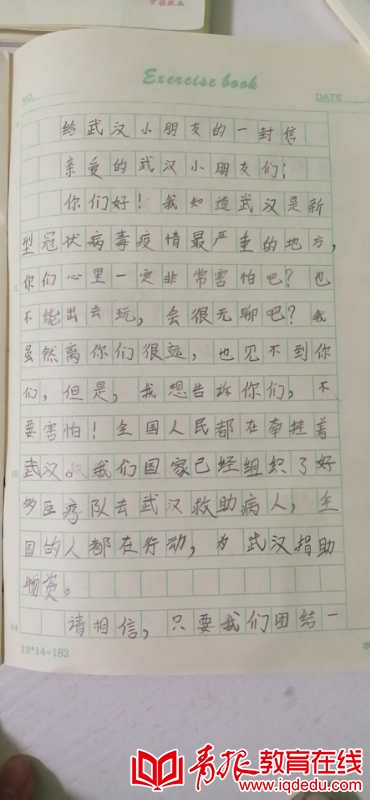 Exercise book
DATE
给武汉小朋友的一封信
亲爱的武汉小朋友们：
你们好！我知道武汉是新
型冠状病毒疫情最严重的地方，
你们心里一定非常害怕吧？也
不能出去玩，会很无聊吧？我
虽然离你们很远，也见不到你
们，但是，我想告诉你们，不
要害怕！全国人民都在牵挂着
武汉。我们国家已经组织了好
多医疗队去武汉救助病人，全
国的人都在行动，为武汉捐助
物资。
请相信，只要我们团结一
13*14=182
青报教育在线
www.iqdedu.com